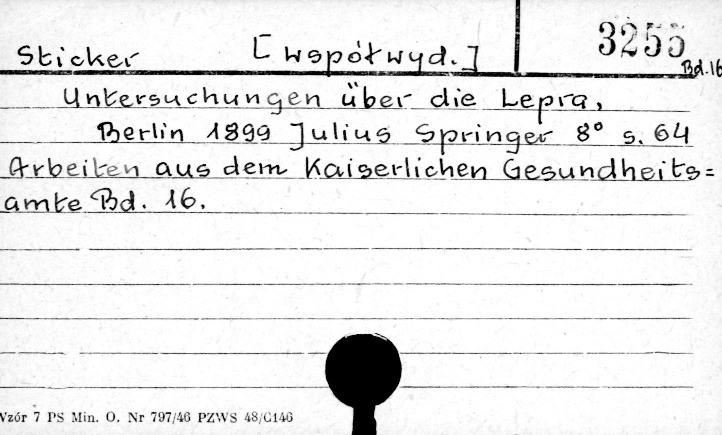 Sticker [współwyd.] 3255
Bd.16
Untersuchungen über die Lepra,
Berlin 1899 Julius Springer 8° s. 64
Arbeiten aus dem Kaiserlichen Gesundheits=
amte Bd. 16.
Vzór 7 PS Min. O. Nr 797/46 PZWS 48/C146